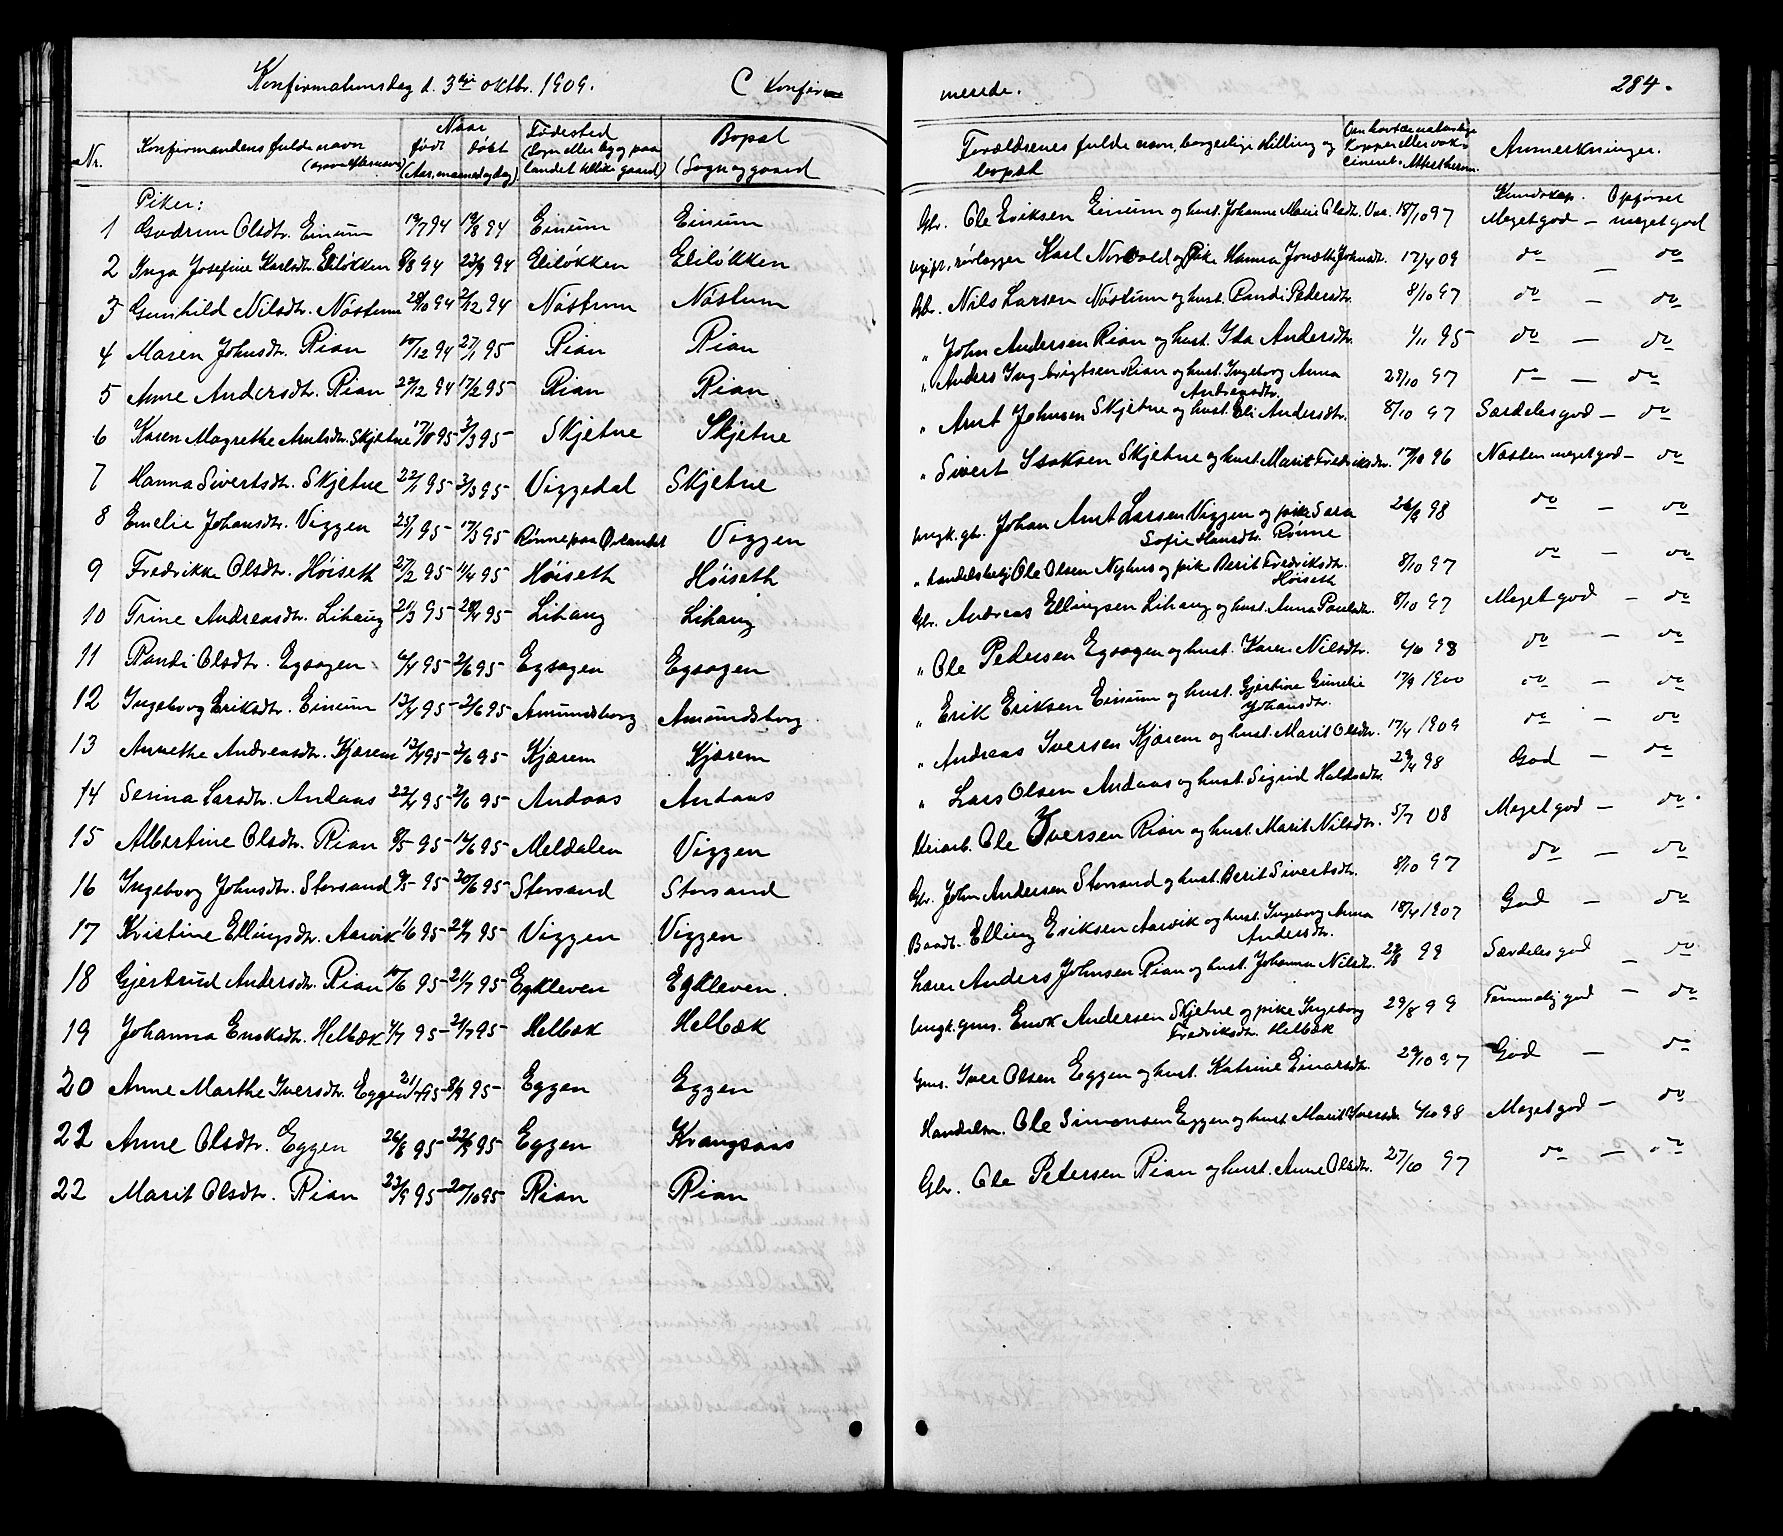 Konfirmationsdag d. 3die oktbr. 1909. C Konfir-
merede. 284.
Nr. Konfirmandens fulde navn Naar født døbt Fødested Bopæl Forældrenes fulde navn, borgerlige stilling og bopæl Anmerkninger.
(Aar, maaned og dag) (Sogn og gaard)
Piker: Kundskap. Opførsel
1 Gudrun Olsdtr. Einum 19/7 94 19/8 94 Einum Einum Gbr. Ole Eriksen Einum og hust. Johanne Marie Olsdtr. 18/10 97 Meget god — meget god
2 Inga Josefine Karlsdtr. Eliløkken 8/8 94 23/9 94 Eliløkken Eliløkken Karl Nordvold og pike Hanna Johnsdtr. 17/4 09 do — do
3 Gunhild Nilsdtr. Nøstum 28/10 94 2/12 94 Nøstum Nøstum Gbr. Nils Larsen Nøstum og hust. Randi Pedersdtr. 8/10 97 do — do
4 Maren Johnsdtr. Rian 10/12 94 27/1 95 Rian Rian " John Andersen Rian og hust. Ida Andersdtr. 1/11 95 do — do
5 Anne Andersdtr. Rian 29/12 94 17/2 95 Rian Rian " Anders Ingbrigtsen Rian og hust. Ingeborg Anna Andreasdtr. 23/10 97 do — do
6 Karen Magrethe Arntsdtr. Skjetne 3/3 95 Skjetne Skjetne " Arnt Johnsen Skjetne og hust. Eli Andersdtr. 8/10 97 Særdeles god — do
7 Hanna Sivertsdtr. Skjetne 22/1 95 3/3 95 Viggedal Skjetne " Sivert Isaksen Skjetne og hust. Marit Fredriksdtr. 17/10 96 Næsten meget god — do
8 Emelie Johansdtr. Viggen 25/1 95 17/3 95 Rønne paa Ørlandet Viggen Ungk. gbr. Johan Arnt Larsen Viggen og pike Sara Sofie Hansdtr. Rønne 26/9 98 do — do
9 Fredrikke Olsdtr. Høiseth 27/2 95 11/4 95 Høiseth Høiseth " handelsbetj. Ole Olsen Nyhus og pik. Berit Fredriksdtr. Høiseth 8/10 97 do — do
10 Trine Andreasdtr. Lihaug 21/3 95 28/4 95 Lihaug Lihaug Gbr. Andreas Ellingsen Lihaug og hust. Anna Paulsdtr. 8/10 97 Meget god — do
11 Randi Olsdtr. Egsagen 6/4 95 2/6 95 Egsagen Egsagen " Ole Pedersen Egsagen og hust. Karen Nilsdtr. 4/10 98 do — do
12 Ingeborg Eriksdtr. Einum 13/4 95 2/6 95 Amundsborg Amundsborg " Erik Eriksen Einum og hust. Gjertine Gunelie Johansdtr. 17/9 1900 do — do
13 Annethe Andreasdtr. Kjærem 13/4 95 2/6 95 Kjærem Kjærem " Andreas Iversen Kjærem og hust. Marit Olsdtr. 17/4 1909 do — do
14 Serina Larsdtr. Andaas 22/4 95 2/6 95 Andaas Andaas " Lars Olsen Andaas og hust. Sigrid Haldosdtr. 29/4 98 God — do
15 Albertine Olsdtr. Rian 8/5 95 16/6 95 Meldalen Viggen Veiarb. Ole Iversen Rian og hust. Marit Nilsdtr. 5/7 08 Meget god — do
16 Ingeborg Johnsdtr. Storsand 9/5 95 30/6 95 Storsand Storsand Gbr. John Andersen Storsand og hust. Berit Sivertsdtr. 8/10 97 do — do
17 Kristine Ellingsdtr. Aarvik 1/6 95 21/7 95 Viggen Viggen Baadb. Elling Eriksen Aarvik og hust. Ingeborg Anna Andersdtr. 18/4 1907 God — do
18 Gjertrud Andersdtr. Rian 10/6 95 21/7 95 Egkleven Egkleven. Lærer Anders Johnsen Rian og hust. Johanna Nilsdtr. 22/8 99 Særdeles god — do
19 Johanna Enoksdtr. Helbæk 1/7 95 21/7 95 Helbæk Helbæk Ungk. gms. Enok Andersen Skjetne og pike Ingeborg Fredriksdtr. Helbæk 29/8 99 Temmelig god — do
20 Anne Marthe Iversdtr. Eggen 21/7 95 8/9 95 Eggen Eggen Gms. Iver Olsen Eggen og hust. Katrine Einarsdtr. 29/10 97 God — do
21 Anne Olsdtr. Eggen 26/8 95 22/9 95 Eggen Krangsaas Handelsm. Ole Simonsen Eggen og hust. Marit Iversdtr. 4/10 98 Meget god — do
22 Marit Olsdtr. Rian 23/9 95 20/10 95 Rian Rian Gbr. Ole Petersen Rian og hust. Anne Olsdtr. 27/10 97 do — do